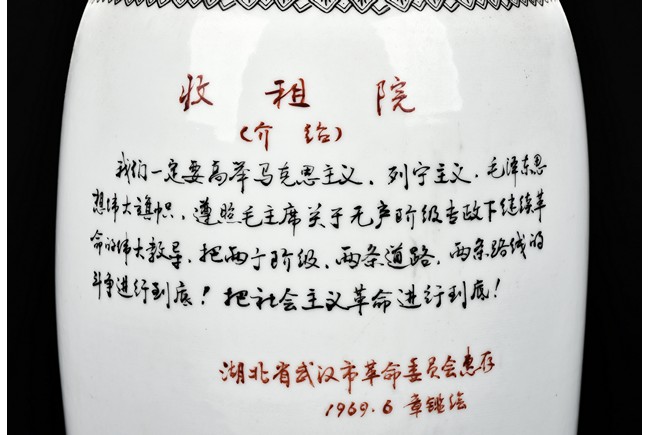 收租院
(介绍)
我们一定要高举马克思主义、列宁主义、毛泽东思
想伟大旗帜，遵照毛主席关于无产阶级专政下继续革
命的伟大教导，把两个阶级、两条道路、两条路线的
斗争进行到底！把社会主义革命进行到底！
湖北省武汉市革命委员会惠存
1969.6 章鑑绘